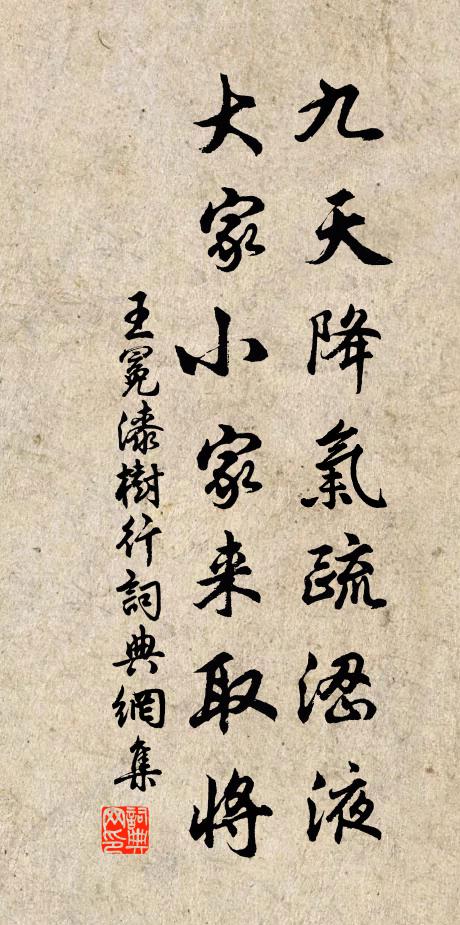 九天降氣疏液
大家小家来取將
王冕漆樹行詞典網集
詞典
网印